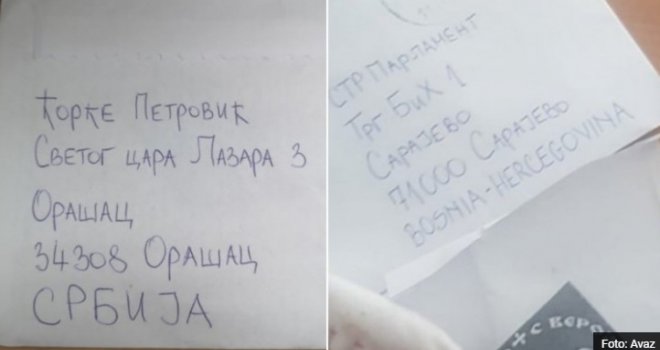 Ђорђе Петровић
Светог цара Лазара 3
Орашац
34308 Орашац
СРБИЈА
СТР Парламент
Трг БиХ 1
Сарајево
71000 Сарајево
BOSNIA-HERCEGOVINA
С ВЕРО
Foto: Avaz